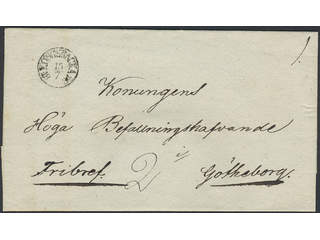 15
7
Konungens
Höga Befallningshafvande
i/
Fribref. 2 Götheborg.